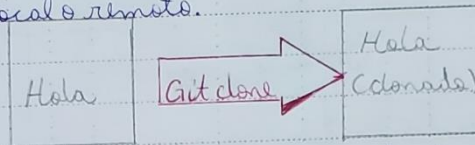 ocal o remoto.
Hola
Git clone
Hola
(clonado)